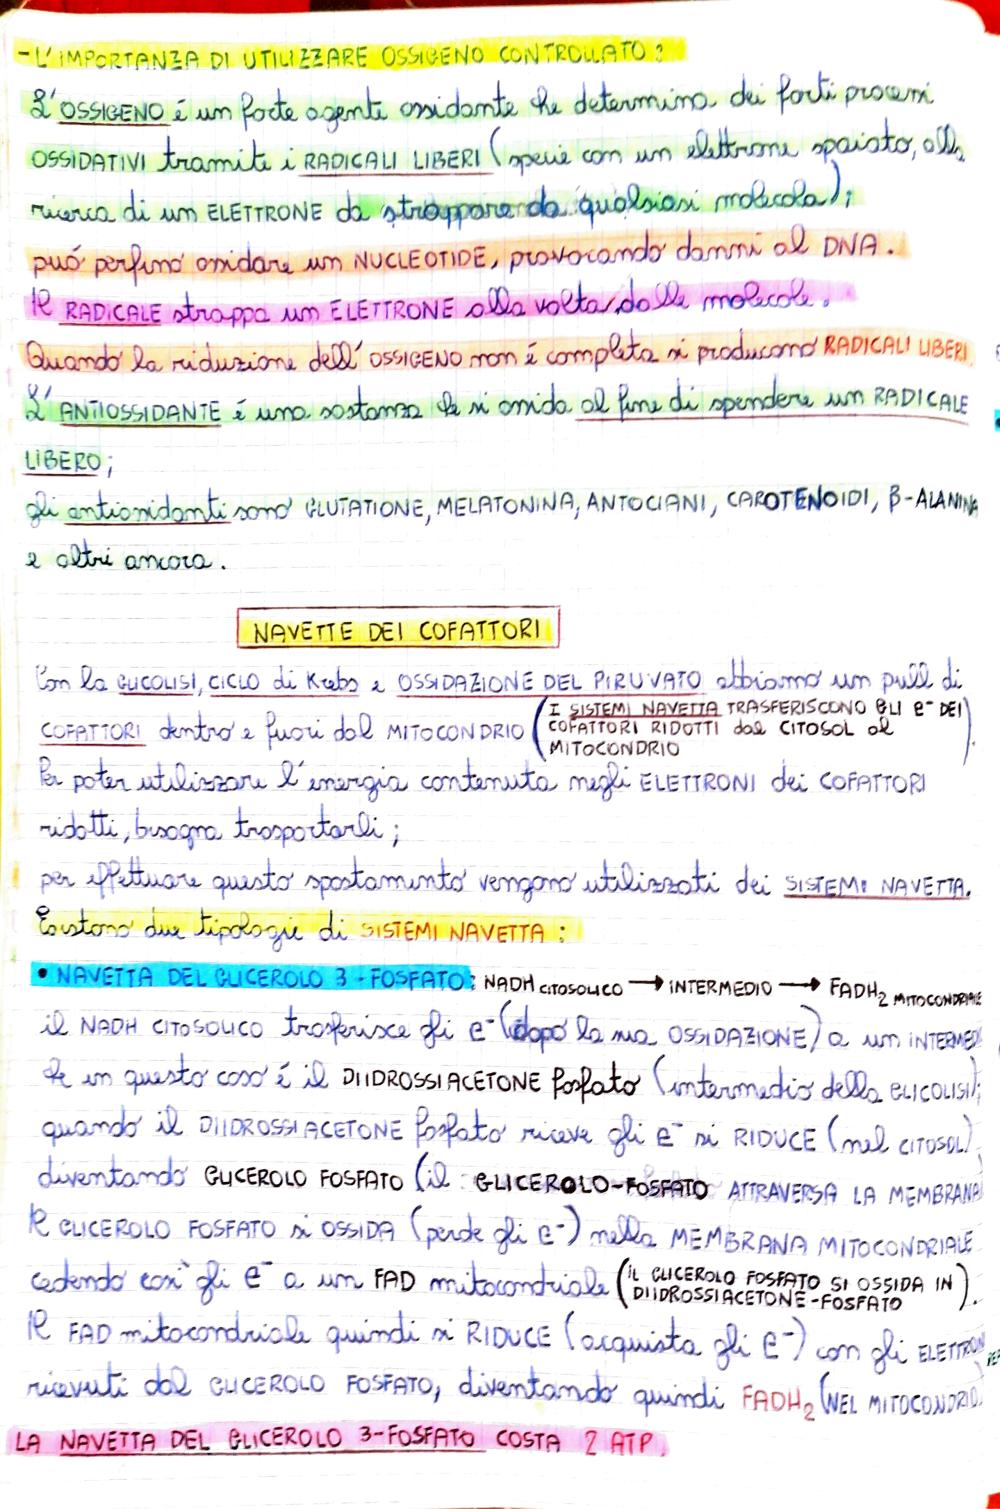 - L'IMPORTANZA DI UTILIZZARE OSSIGENO CONTROLLATO:
L'OSSIGENO é un forte agente ossidante che determina dei forti processi
OSSIDATIVI tramite i RADICALI LIBERI (specie con un elettrone spaiato, alla
ricerca di un ELETTRONE da strappare da qualsiasi molecola);
può perfino ossidare un NUCLEOTIDE, provocando danni al DNA.
Il RADICALE strappa un ELETTRONE alla volta dalle molecole.
Quando la riduzione dell'OSSIGENO non é completa si producono RADICALI LIBERI.
L'ANTIOSSIDANTE é una sostanza che si ossida al fine di spendere un RADICALE
LIBERO;
gli antiossidanti sono GLUTATIONE, MELATONINA, ANTOCIANI, CAROTENOIDI, β-ALANINA
e altri ancora.
NAVETTE DEI COFATTORI
Con la GLICOLISI, CICLO di Krebs e OSSIDAZIONE DEL PIRUVATO abbiamo un pull di
COFATTORI dentro e fuori dal MITOCONDRIO (I SISTEMI NAVETTA TRASFERISCONO GLI e⁻ DEI
COFATTORI RIDOTTI dal CITOSOL al
MITOCONDRIO).
Per poter utilizzare l'energia contenuta negli ELETTRONI dei COFATTORI
ridotti, bisogna trasportarli;
per effettuare questo spostamento vengono utilizzati dei SISTEMI NAVETTA.
Esistono due tipologie di SISTEMI NAVETTA:
• NAVETTA DEL GLICEROLO 3-FOSFATO: NADH CITOSOLICO → INTERMEDIO → FADH₂ MITOCONDRIALE
il NADH CITOSOLICO trasferisce gli e⁻ (dopo la sua OSSIDAZIONE) a un INTERMED
che in questo caso é il DIIDROSSIACETONE fosfato (intermedio della GLICOLISI);
quando il DIIDROSSIACETONE fosfato riceve gli e⁻ si RIDUCE (nel CITOSOL)
diventando GLICEROLO FOSFATO (il GLICEROLO-FOSFATO ATTRAVERSA LA MEMBRANA)
Il GLICEROLO FOSFATO si OSSIDA (perde gli e⁻) nella MEMBRANA MITOCONDRIALE
cedendo così gli e⁻ a un FAD mitocondriale (IL GLICEROLO FOSFATO SI OSSIDA IN
DIIDROSSIACETONE-FOSFATO).
Il FAD mitocondriale quindi si RIDUCE (acquista gli e⁻) con gli ELETTRON
ricevuti dal GLICEROLO FOSFATO, diventando quindi FADH₂ (NEL MITOCONDRIO)
LA NAVETTA DEL GLICEROLO 3-FOSFATO COSTA 2 ATP.